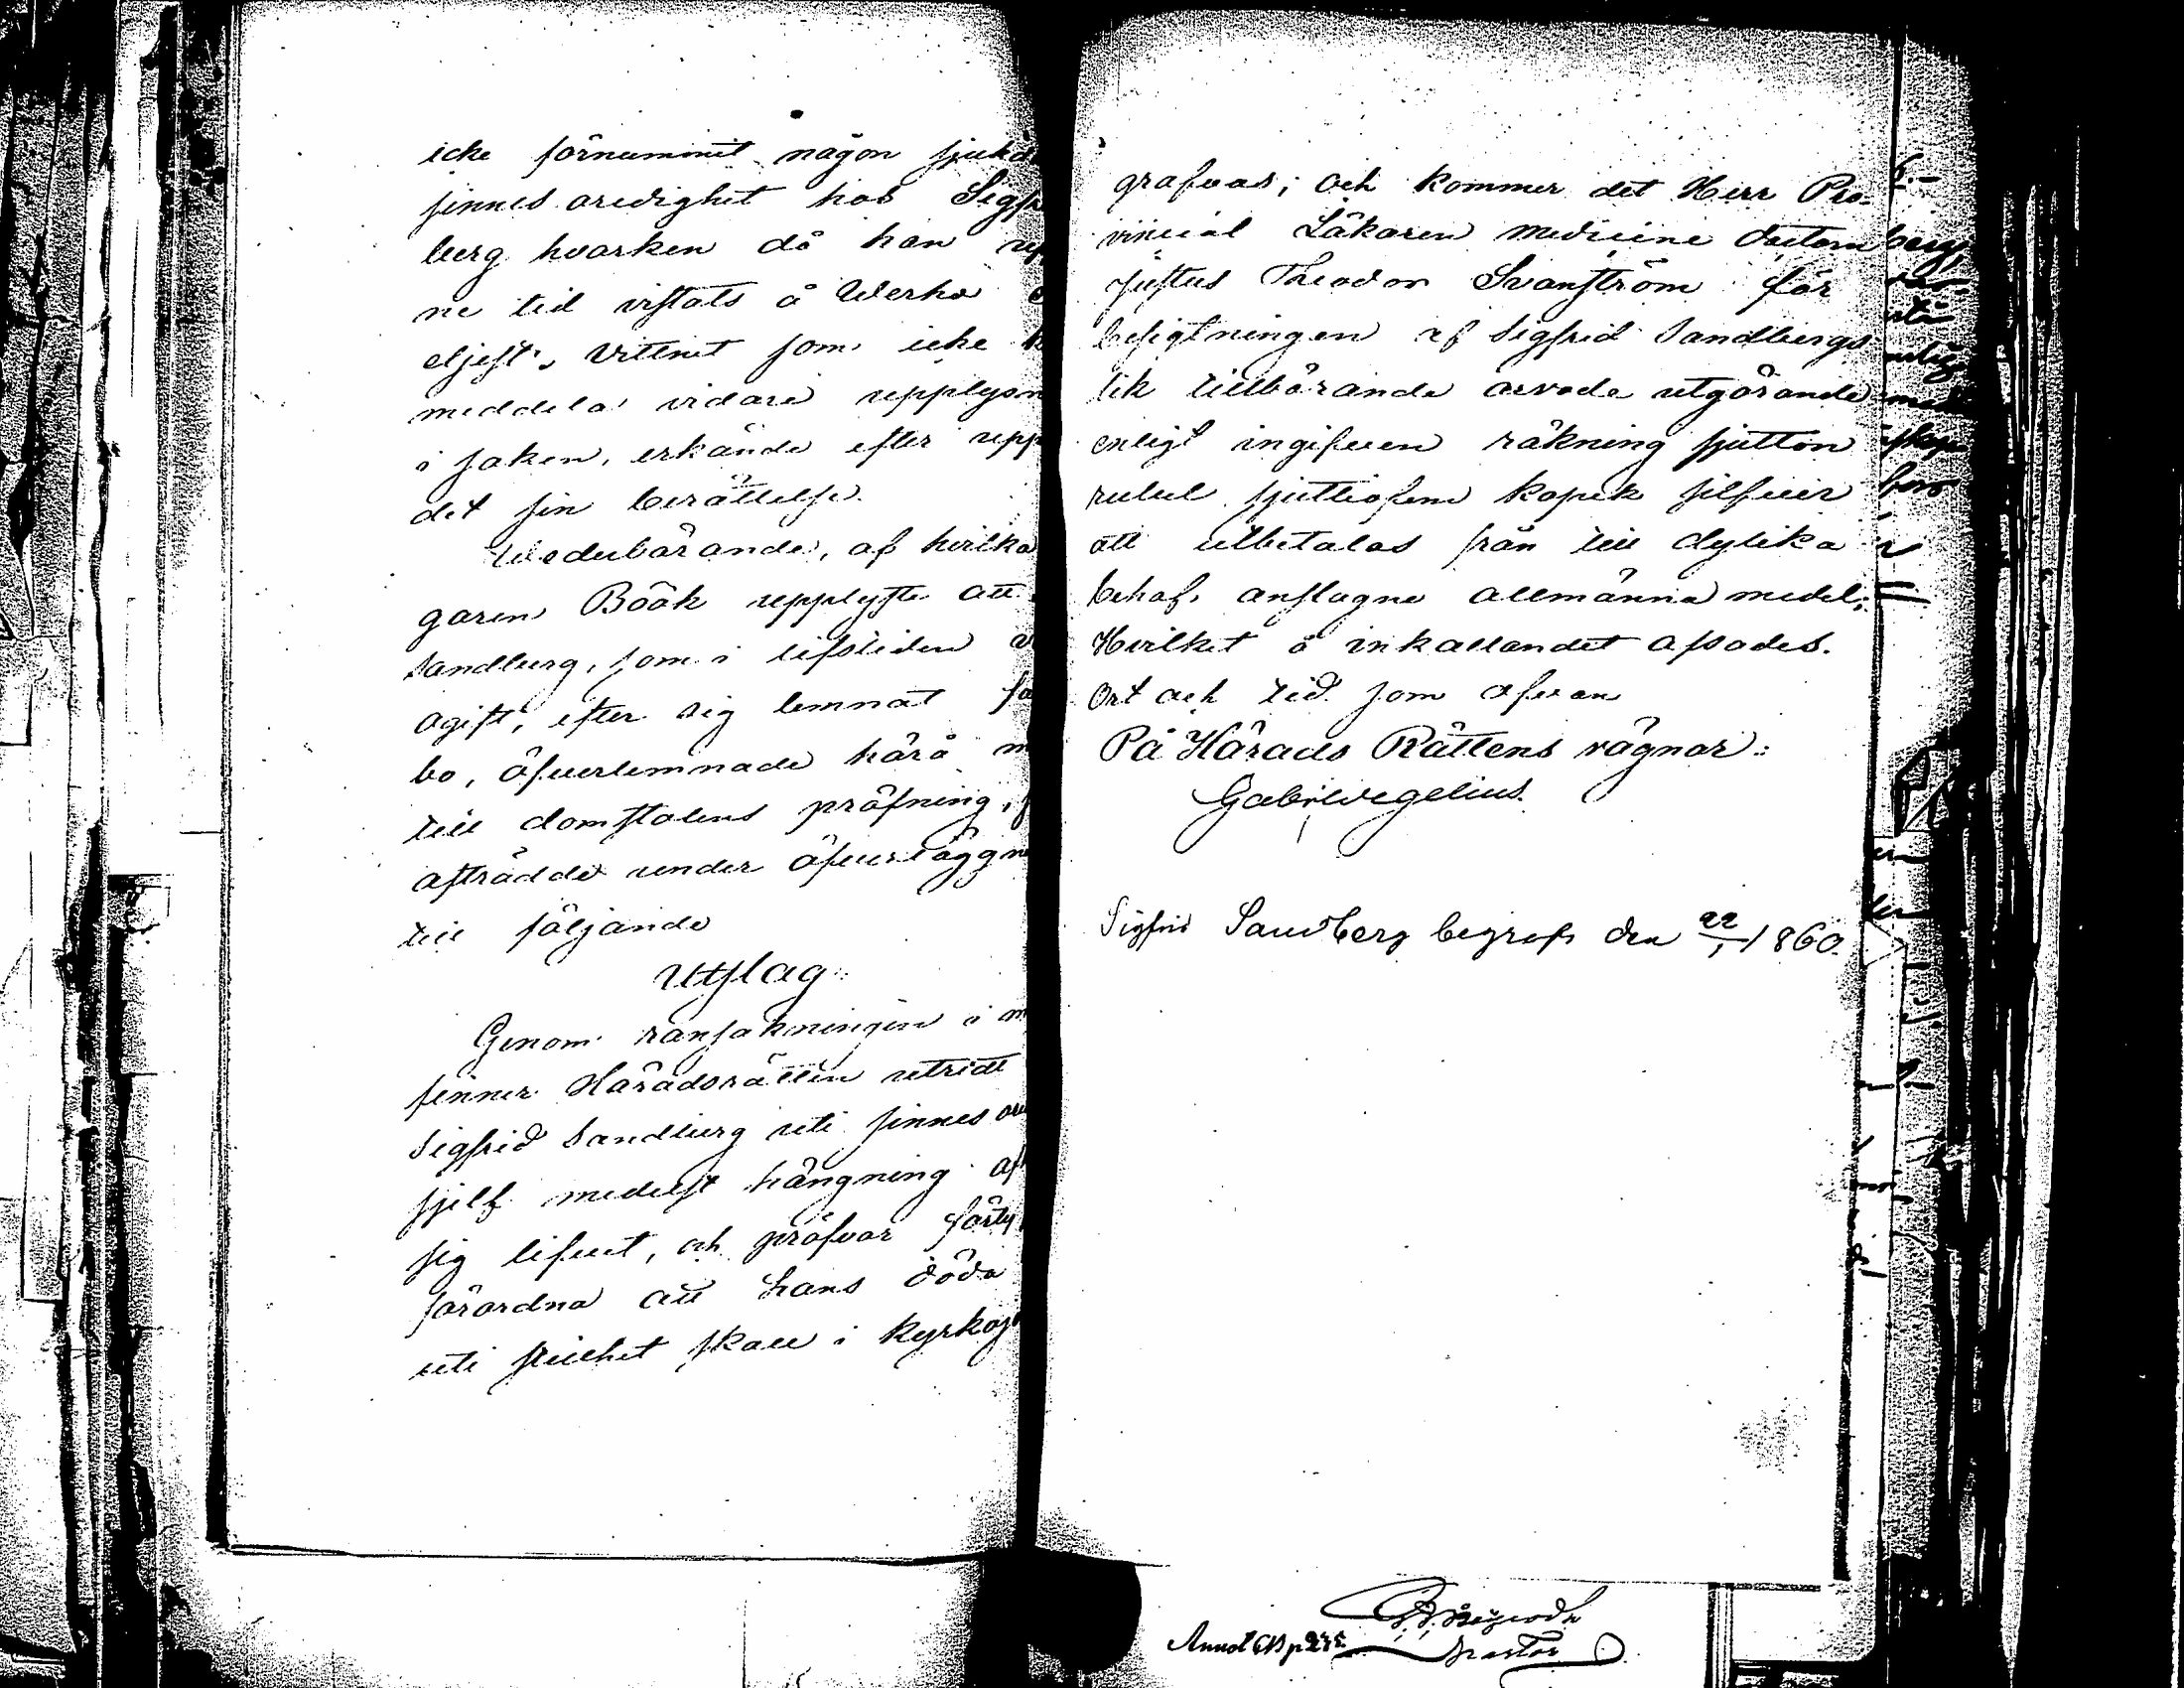 icke förnummit någon sjukd
sinnes oredighet hos Sigfr
berg hvarken då han up
ne tid vistats å Werho
eljest, Vittnet som icke k
meddela vidare upplysn
i saken, erkände efter upp
det sin berättelse.
Wederbörande, af hvilka
garen Böök upplyste att
Sandberg, som i lifstiden
ogift, efter sig lemnat
bo, öfverlemnade härå m
till domstolens pröfning,
afträdde under öfverläggn
till följande
Utslag:
Genom ransakningen i m
finner Häradsrätten utredt
Sigfrid Sandberg uti sinnes or
sjelf medelst hängning af
sig lifvet, och pröfvar
förordna att hans döda
uti stillhet skall i kyrkog
grafvas; och kommer det Herr Pro-
vincial Läkaren medicine doctorn
Justus Theodor Svanström för
besigtningen af Sigfrid Sandbergs
lik tillbörande arvode utgörande
enligt ingifven räkning sjutton
rubel sjuttiofem kopek silfver
att utbetalas från till dylika
behof anslagne allmänna medel;
Hvilket å inkallandet afsades.
Ort och tid som ofvan
På Härads Rättens vägnar:
Gab: Wegelius.
Sigfrid Sandberg begrofs den 22/1 1860.
Annot
Pastor